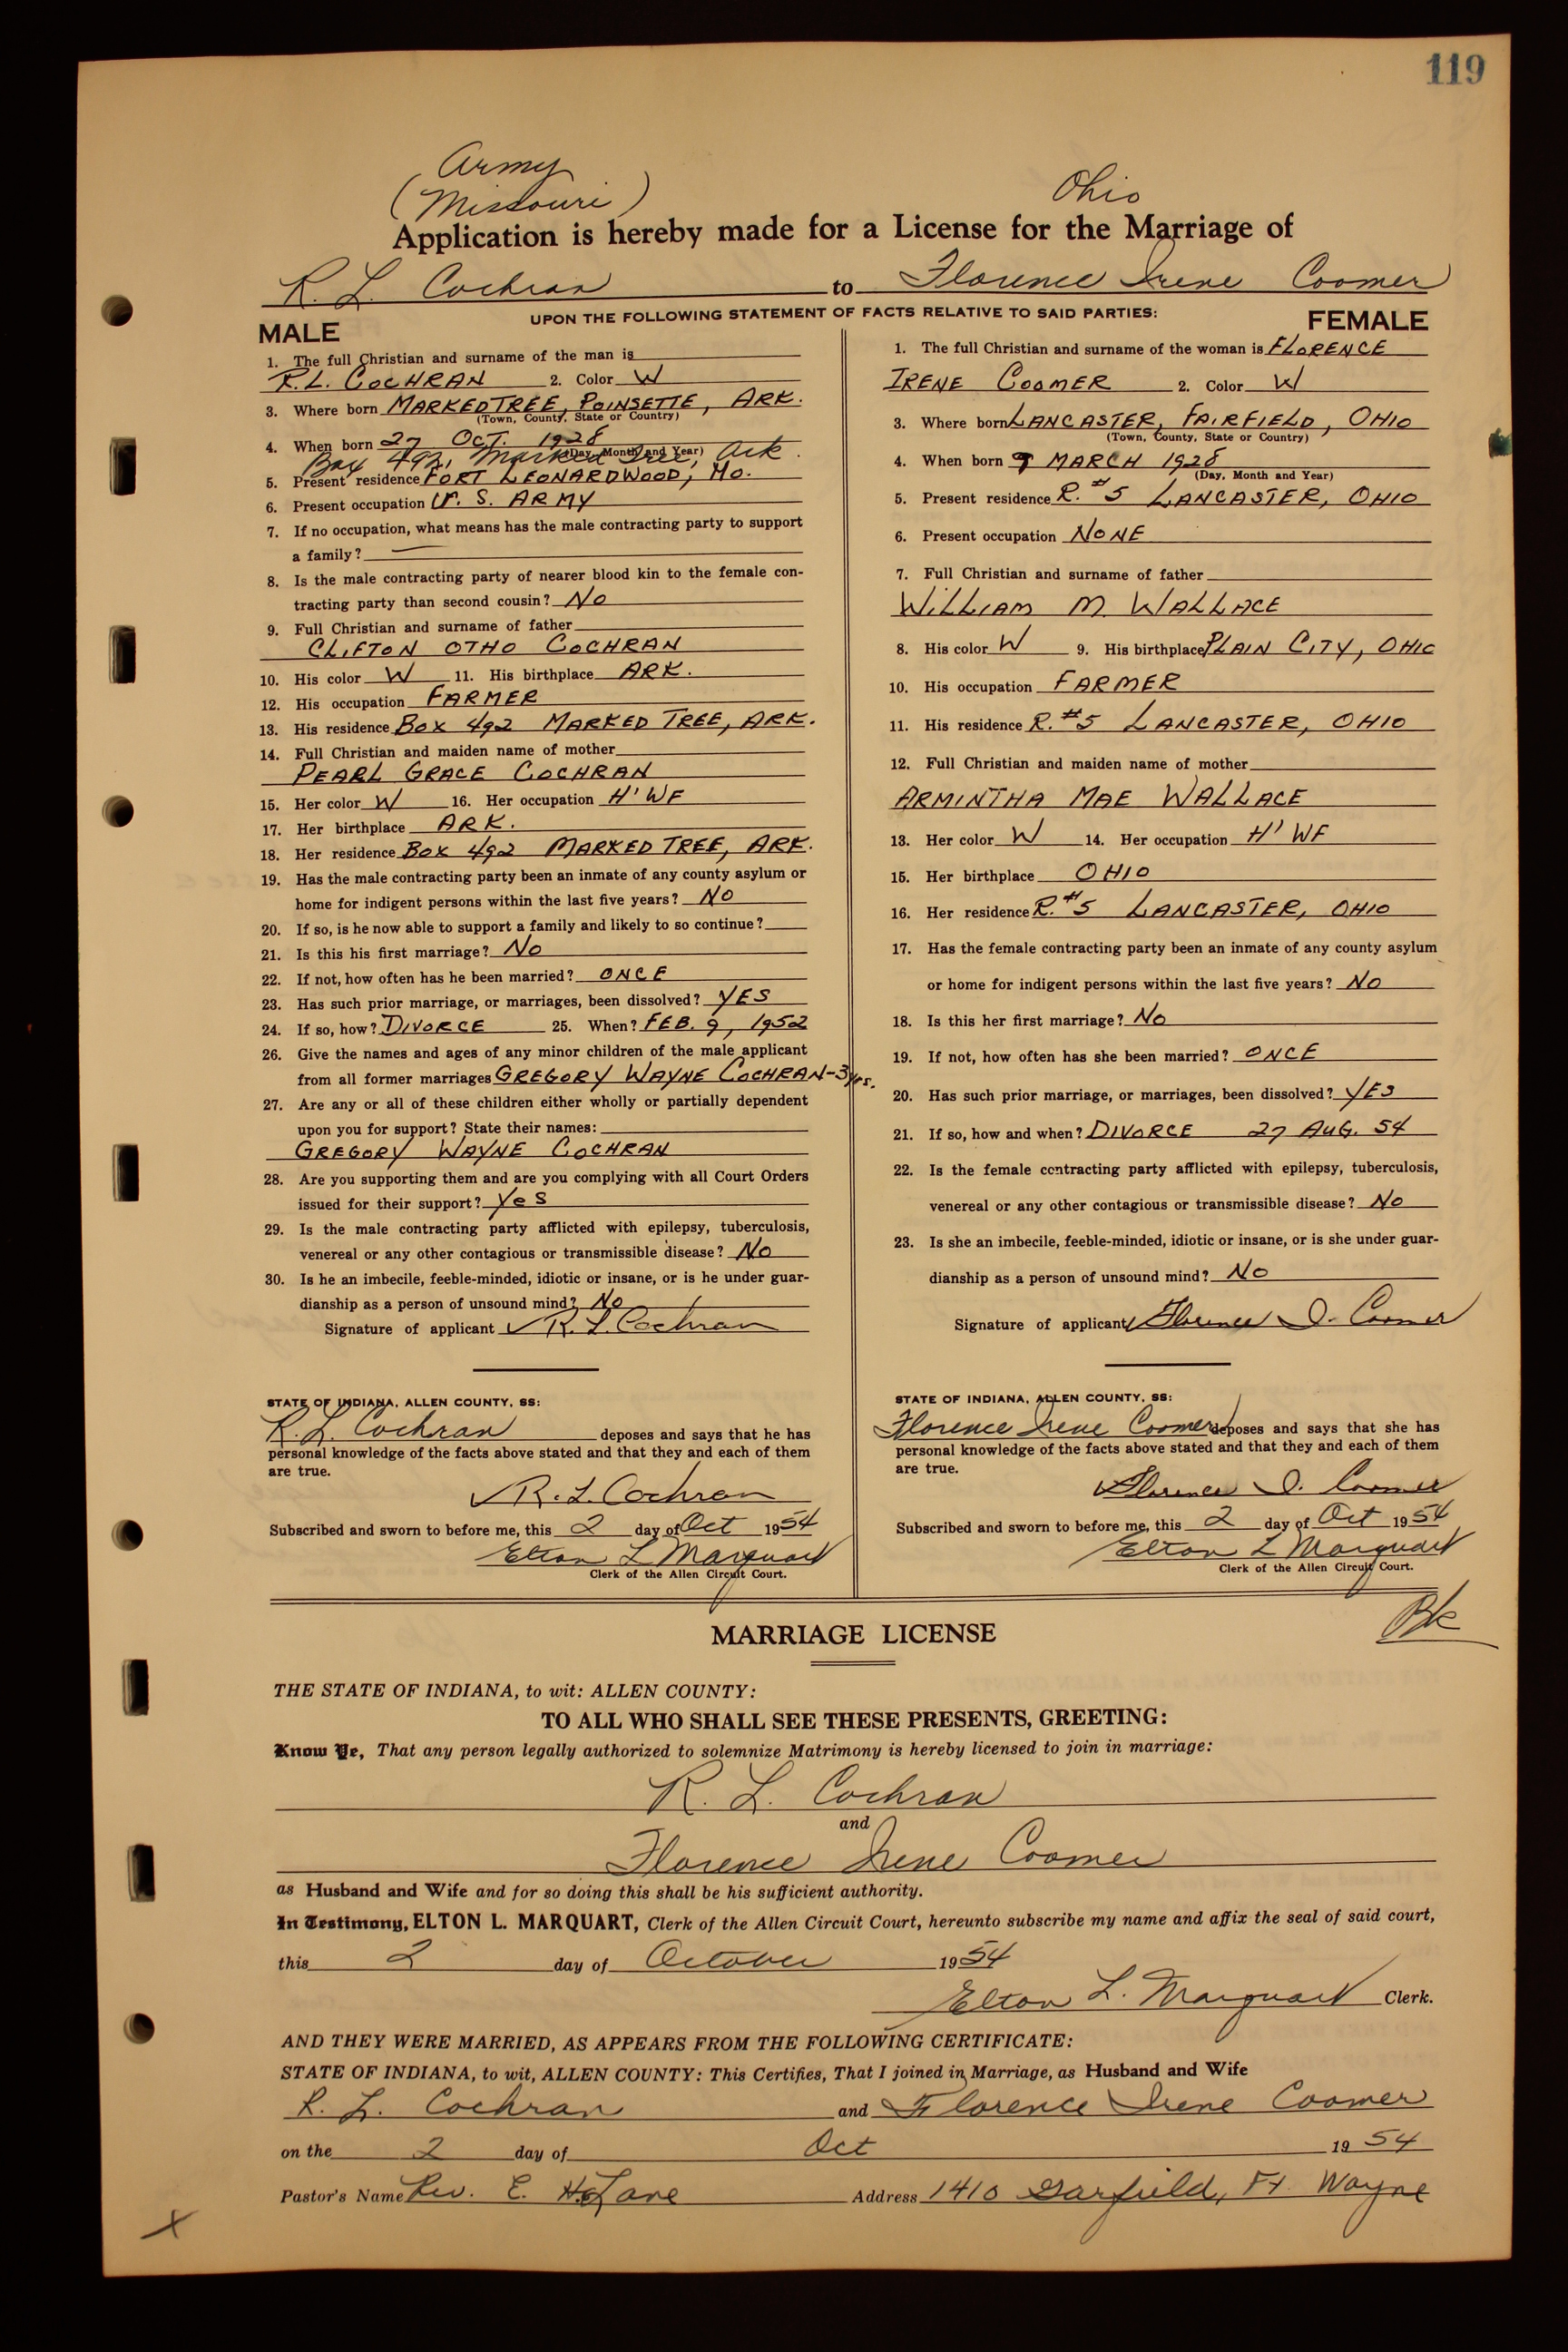 119
Army
(Missouri)
Ohio
Application is hereby made for a License for the Marriage of
R. L. Cochran to Florence Irene Coomer
UPON THE FOLLOWING STATEMENT OF FACTS RELATIVE TO SAID PARTIES:
MALE
1. The full Christian and surname of the man is
R. L. COCHRAN 2. Color W
3. Where born MARKED TREE, POINSETTE, ARK.
(Town, County, State or Country)
4. When born 27 OCT. 1928
(Day, Month and Year)
Box 492, Marked Tree, Ark.
5. Present residence FORT LEONARDWOOD, MO.
6. Present occupation U. S. ARMY
7. If no occupation, what means has the male contracting party to support
a family? —
8. Is the male contracting party of nearer blood kin to the female con-
tracting party than second cousin? NO
9. Full Christian and surname of father
CLIFTON OTHO COCHRAN
10. His color W 11. His birthplace ARK.
12. His occupation FARMER
13. His residence BOX 492 MARKED TREE, ARK.
14. Full Christian and maiden name of mother
PEARL GRACE COCHRAN
15. Her color W 16. Her occupation H'WF
17. Her birthplace ARK.
18. Her residence BOX 492 MARKED TREE, ARK.
19. Has the male contracting party been an inmate of any county asylum or
home for indigent persons within the last five years? NO
20. If so, is he now able to support a family and likely to so continue?
21. Is this his first marriage? NO
22. If not, how often has he been married? ONCE
23. Has such prior marriage, or marriages, been dissolved? YES
24. If so, how? DIVORCE 25. When? FEB. 9, 1952
26. Give the names and ages of any minor children of the male applicant
from all former marriages GREGORY WAYNE COCHRAN-3 yrs.
27. Are any or all of these children either wholly or partially dependent
upon you for support? State their names:
GREGORY WAYNE COCHRAN
28. Are you supporting them and are you complying with all Court Orders
issued for their support? Yes
29. Is the male contracting party afflicted with epilepsy, tuberculosis,
venereal or any other contagious or transmissible disease? NO
30. Is he an imbecile, feeble-minded, idiotic or insane, or is he under guar-
dianship as a person of unsound mind? NO
Signature of applicant R. L. Cochran
STATE OF INDIANA, ALLEN COUNTY, SS:
R. L. Cochran deposes and says that he has
personal knowledge of the facts above stated and that they and each of them
are true.
R. L. Cochran
Subscribed and sworn to before me, this 2 day of Oct 1954
Elton L Marquart
Clerk of the Allen Circuit Court.
FEMALE
1. The full Christian and surname of the woman is FLORENCE
IRENE COOMER 2. Color W
3. Where born LANCASTER, FAIRFIELD, OHIO
(Town, County, State or Country)
4. When born 9 MARCH 1928
(Day, Month and Year)
5. Present residence R. #5 LANCASTER, OHIO
6. Present occupation NONE
7. Full Christian and surname of father
WILLIAM M. WALLACE
8. His color W 9. His birthplace PLAIN CITY, OHIO
10. His occupation FARMER
11. His residence R. #5 LANCASTER, OHIO
12. Full Christian and maiden name of mother
ARMINTHA MAE WALLACE
13. Her color W 14. Her occupation H'WF
15. Her birthplace OHIO
16. Her residence R. #5 LANCASTER, OHIO
17. Has the female contracting party been an inmate of any county asylum
or home for indigent persons within the last five years? NO
18. Is this her first marriage? NO
19. If not, how often has she been married? ONCE
20. Has such prior marriage, or marriages, been dissolved? YES
21. If so, how and when? DIVORCE 27 AUG. 54
22. Is the female contracting party afflicted with epilepsy, tuberculosis,
venereal or any other contagious or transmissible disease? NO
23. Is she an imbecile, feeble-minded, idiotic or insane, or is she under guar-
dianship as a person of unsound mind? NO
Signature of applicant Florence I. Coomer
STATE OF INDIANA, ALLEN COUNTY, SS:
Florence Irene Coomer deposes and says that she has
personal knowledge of the facts above stated and that they and each of them
are true.
Florence I. Coomer
Subscribed and sworn to before me, this 2 day of Oct 1954
Elton L Marquart
Clerk of the Allen Circuit Court.
Bk
MARRIAGE LICENSE
THE STATE OF INDIANA, to wit: ALLEN COUNTY:
TO ALL WHO SHALL SEE THESE PRESENTS, GREETING:
Know Ye, That any person legally authorized to solemnize Matrimony is hereby licensed to join in marriage:
R. L. Cochran
and
Florence Irene Coomer
as Husband and Wife and for so doing this shall be his sufficient authority.
In Testimony, ELTON L. MARQUART, Clerk of the Allen Circuit Court, hereunto subscribe my name and affix the seal of said court,
this 2 day of October 1954
Elton L. Marquart Clerk.
AND THEY WERE MARRIED, AS APPEARS FROM THE FOLLOWING CERTIFICATE:
STATE OF INDIANA, to wit, ALLEN COUNTY: This Certifies, That I joined in Marriage, as Husband and Wife
R. L. Cochran and Florence Irene Coomer
on the 2 day of Oct 1954
Pastor's Name Rev. E. H. Lane Address 1410 Garfield, Ft. Wayne
X